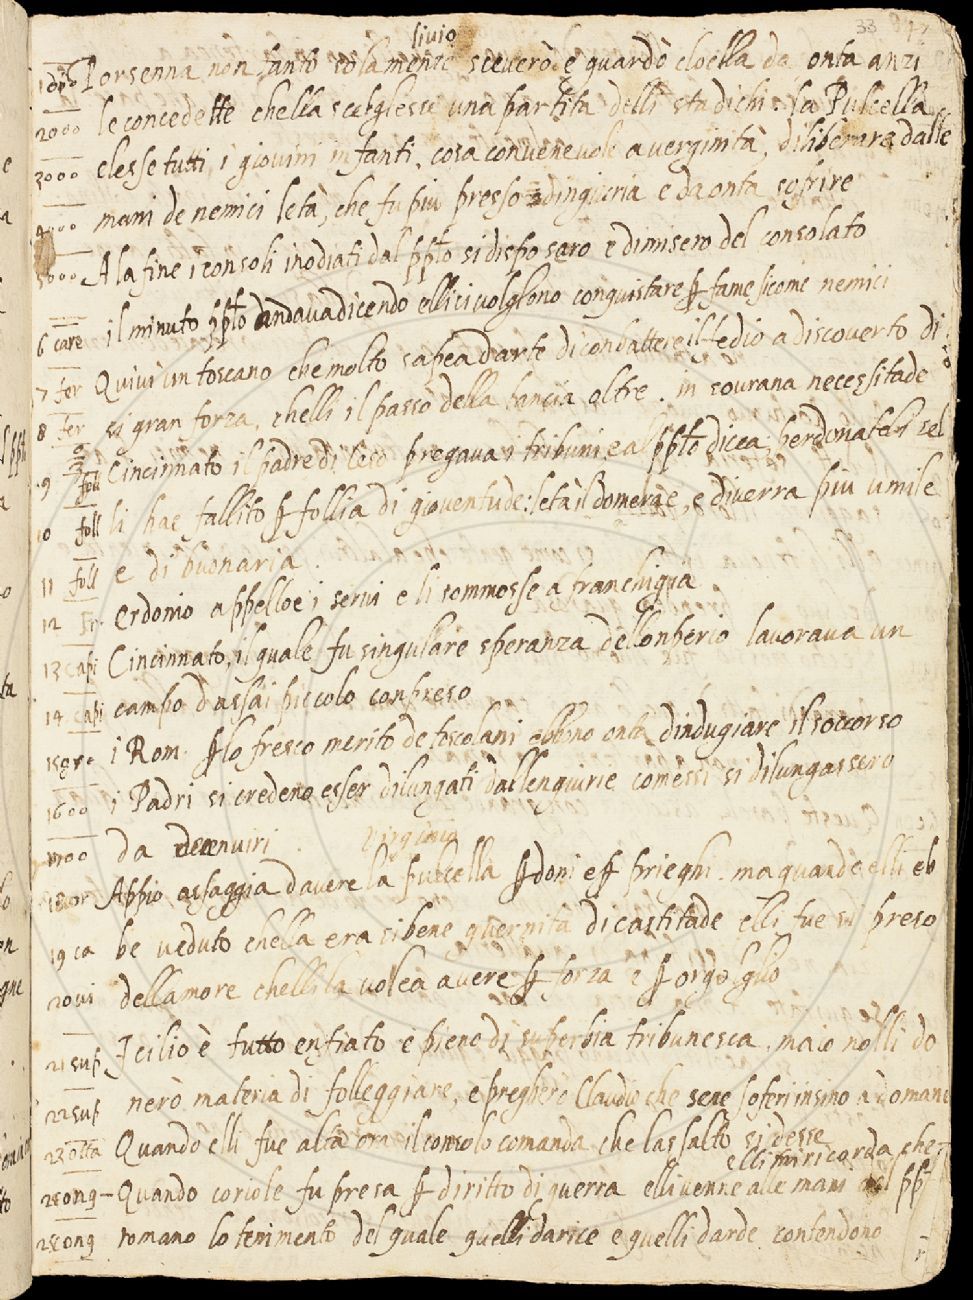 33
livio
Porsenna non tanto solamente sceverò e guardò cloella da onta anzi
le concedette chella scelglesse una partita delli stadichi. La Pulcella
elesse tutti i giovini infanti, cosa convenevole a verginità, diliberare dalle
mani de nemici letà, che fu piu presso dingiuria e da onta sofrire
A la fine i consoli inodiati dal pplo si disposaro e dimisero del consolato
il minuto pplo andava dicendo elli ci volglono conquistare p fame sicome nemici
Quivi un toscano che molto sapea darte di condattere il fedio a discoverto di
si gran forza, chelli il passò della lancia oltre. in sovrana necessitade
Cincinnato il padre di Ceso pregava i tribuni e al pplo dicea, perdonateli sel
li hae fallito p follia di gioventude: letà il domerae, e diverra più umile
e di buonaria.
Erdonio appelloe i servi e li sommosse a franchigia
Cincinnato, il quale fu singulare speranza dellonperio lavorava un
campo dassai piccolo conpreso
i Rom. p lo fresco merito de toscolani ebbono onta dindugiare il soccorso
i Padri si credeno esser dilungati dallengiurie comessi si dilungassero
da decenviri. virginia
Appio assaggia davere la pulcella p doni e p prieghi. ma quando elli eb
be veduto chella era si bene guernita di castitade elli fue si preso
dellamore chelli la volea avere p forza e p orgoglio
Icilio è tutto enfiato e pieno di superbia tribunesca. ma io nolli do
nerò materia di folleggiare, e pregherò Claudio che sene soferi insino a domane
Quando elli fue alta ora il consolo comanda che lassalto si desse
elli mi ricorda che
Quando coriole fu presa p diritto di guerra elli venne alle mani del ppl
romano lo tenimento del quale quelli darice e quelli darde contendono